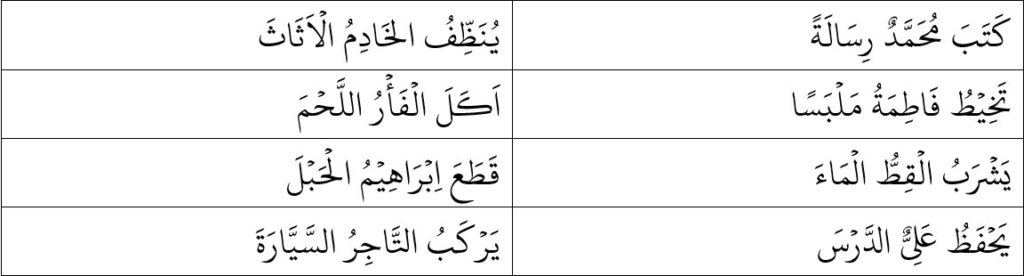 كَتَبَ مُحَمَّدٌ رِسَالَةً
يُنَظِّفُ الخَادِمُ الْاَثَاثَ
تَخِيْطُ فَاطِمَةُ مَلْبَسًا
اَكَلَ الْفَأْرُ اللَّحْمَ
يَشْرَبُ الْقِطُّ الْمَاءَ
قَطَعَ اِبْرَاهِيْمُ الْحَبْلَ
يَحْفَظُ عَلِىٌّ الدَّرْسَ
يَرْكَبُ التَّاجِرُ السَّيَّارَةَ